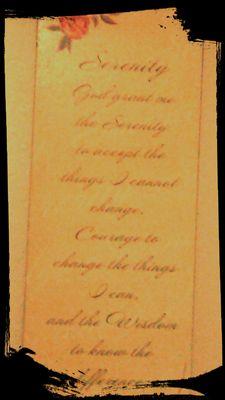 Serenity
God grant me
the Serenity
to accept the
things I cannot
change,
Courage to
change the things
I can,
and the Wisdom
to know the
difference